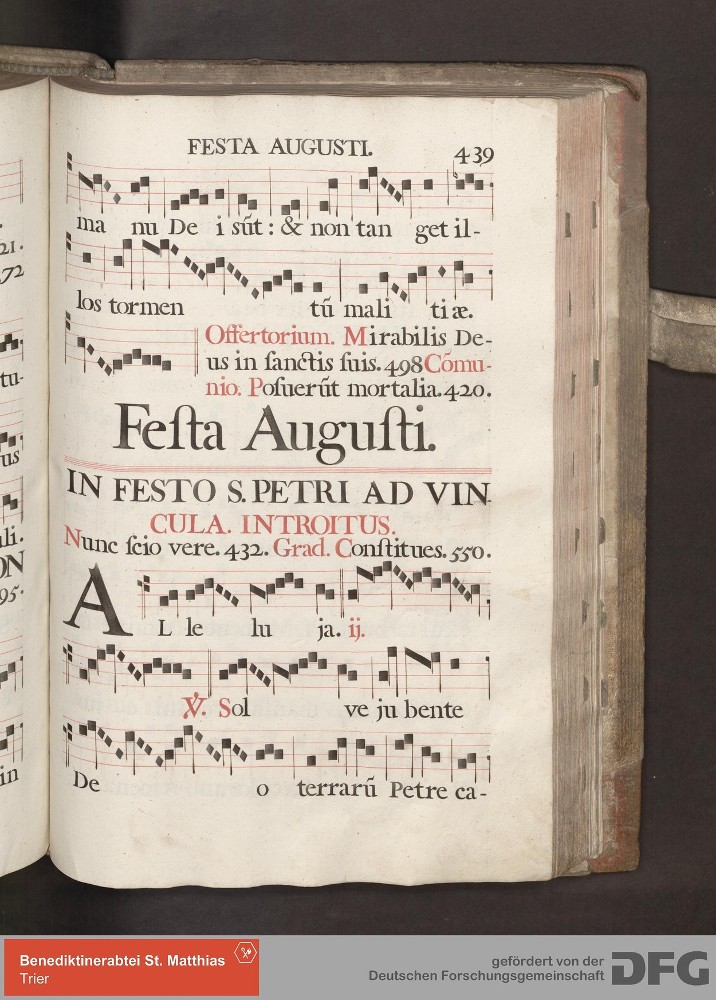 FESTA AUGUSTI.
439
ma nu De i sũt : & non tan get il-
los tormen tũ mali tiæ.
Offertorium. Mirabilis De-
us in ſanctis ſuis. 498 Cõmu-
nio. Poſuerũt mortalia. 420.
Feſta Auguſti.
IN FESTO S. PETRI AD VIN
CULA. INTROITUS.
Nunc ſcio vere. 432. Grad. Conſtitues. 550.
A L le lu ja. ij.
℣. Sol ve ju bente
De o terrarũ Petre ca-
21.
472
tu-
us
ali.
ON
95.
in
Benediktinerabtei St. Matthias
Trier
gefördert von der
Deutschen Forschungsgemeinschaft
DFG